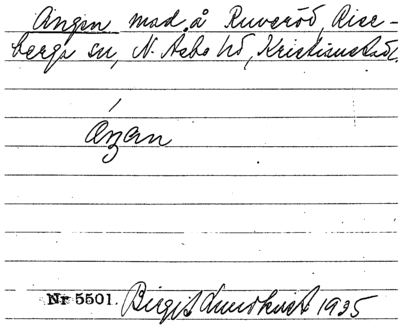 Ängen mad å Ruveröd, Rise-
berga sn, N. Åsbo hd, Kristianstads l.
Nr 5501. Birgit Lundkvist 1935